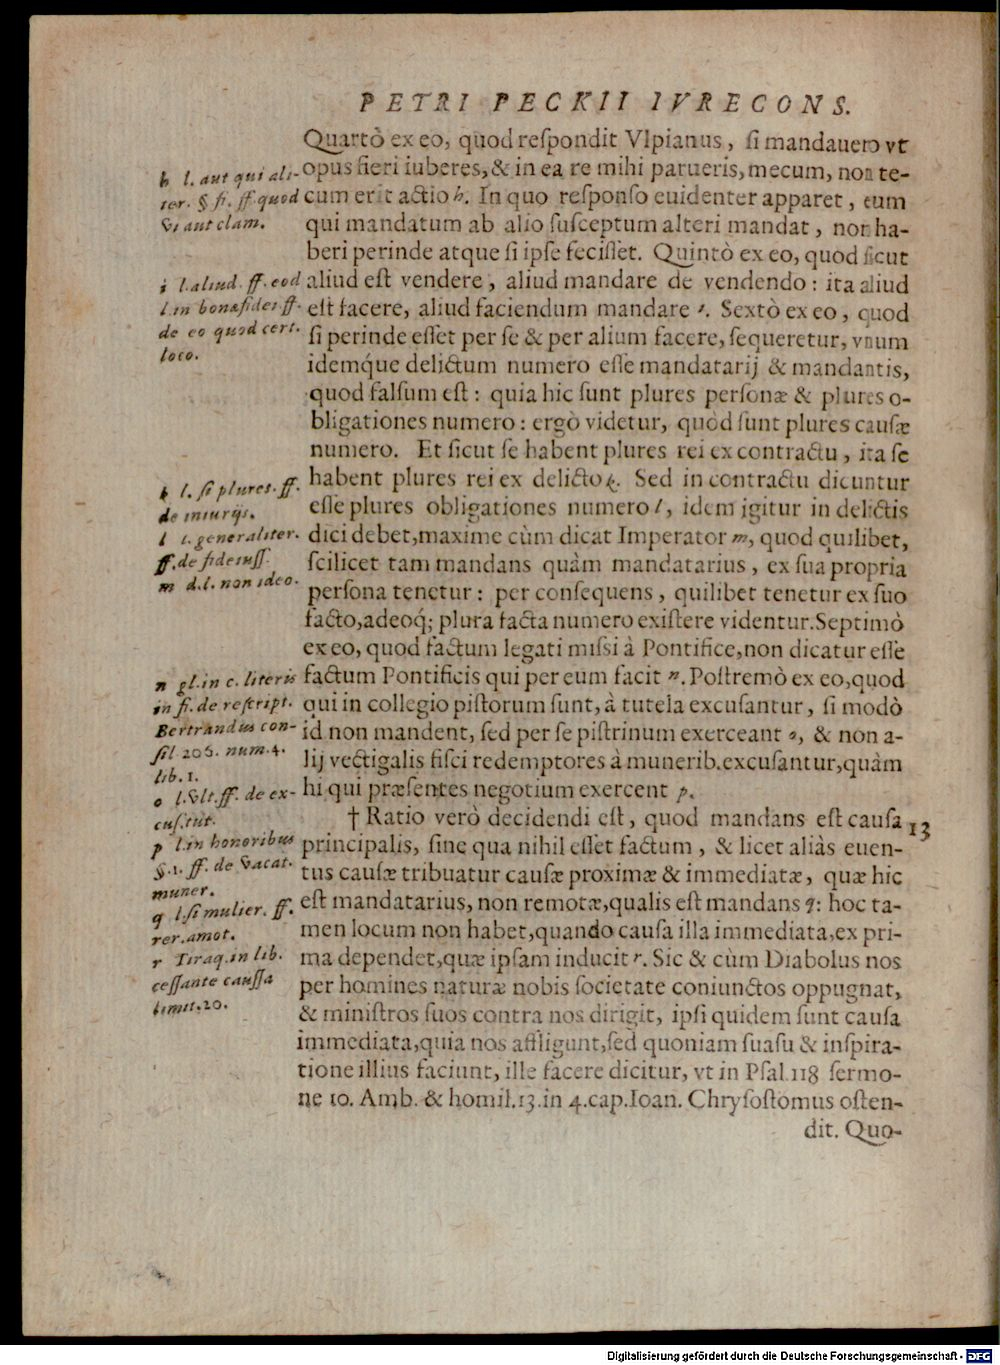 PETRI PECKII IVRECONS.
Quartò ex eo, quod reſpondit Vlpianus, ſi mandauero vt
opus fieri iuberes, & in ea re mihi parueris, mecum, non te-
cum erit actio h. In quo reſponſo euidenter apparet, eum
qui mandatum ab alio ſuſceptum alteri mandat, non ha-
beri perinde atque ſi ipſe feciſſet. Quintò ex eo, quod ſicut
aliud eſt vendere, aliud mandare de vendendo: ita aliud
eſt facere, aliud faciendum mandare i. Sextò ex eo, quod
ſi perinde eſſet per ſe & per alium facere, ſequeretur, vnum
idemq́ue delictum numero eſſe mandatarij & mandantis,
quod falſum eſt: quia hic ſunt plures perſonæ & plures o-
bligationes numero: ergò videtur, quòd ſunt plures cauſæ
numero. Et ſicut ſe habent plures rei ex contractu, ita ſe
habent plures rei ex delicto k. Sed in contractu dicuntur
eſſe plures obligationes numero l, idem igitur in delictis
dici debet, maxime cùm dicat Imperator m, quod quilibet,
ſcilicet tam mandans quàm mandatarius, ex ſua propria
perſona tenetur: per conſequens, quilibet tenetur ex ſuo
facto, adeoq́; plura facta numero exiſtere videntur. Septimò
ex eo, quod factum legati miſsi à Pontifice, non dicatur eſſe
factum Pontificis qui per eum facit n. Poſtremò ex eo, quod
qui in collegio piſtorum ſunt, à tutela excuſantur, ſi modò
id non mandent, ſed per ſe piſtrinum exerceant o, & non a-
lij vectigalis fiſci redemptores à munerib. excuſantur, quàm
hi qui præſentes negotium exercent p.
† Ratio verò decidendi eſt, quod mandans eſt cauſa
principalis, ſine qua nihil eſſet factum, & licet aliàs euen-
tus cauſæ tribuatur cauſæ proximæ & immediatæ, quæ hic
eſt mandatarius, non remotæ, qualis eſt mandans q: hoc ta-
men locum non habet, quando cauſa illa immediata, ex pri-
ma dependet, quæ ipſam inducit r. Sic & cùm Diabolus nos
per homines naturæ nobis ſocietate coniunctos oppugnat,
& miniſtros ſuos contra nos dirigit, ipſi quidem ſunt cauſa
immediata, quia nos affligunt, ſed quoniam ſuaſu & inſpira-
tione illius faciunt, ille facere dicitur, vt in Pſal. 118 ſermo-
ne 10. Amb. & homil. 13. in 4. cap. Ioan. Chryſoſtomus oſten-
dit. Quo-
h l. aut qui ali-
ter. §. fi. ff. quod
vi aut clam.
i l. aliud. ff. eod
l. in bonæ fidei ff.
de eo quod cert.
loco.
k l. ſi plures. ff.
de iniurijs.
l l. generaliter.
ff. de fideiuſſ.
m d. l. non ideo.
n gl. in c. literis
in fi. de reſcript.
Bertrandus con-
ſil. 206. num. 4.
lib. 1.
o l. vlt. ff. de ex-
cuſ. tut.
p l. in honoribus
§. 1. ff. de vacat.
muner.
q l. ſi mulier. ff.
rer. amot.
r Tiraq. in lib.
ceſſante cauſſa
limit. 20.
13
Digitalisierung gefördert durch die Deutsche Forschungsgemeinschaft - DFG